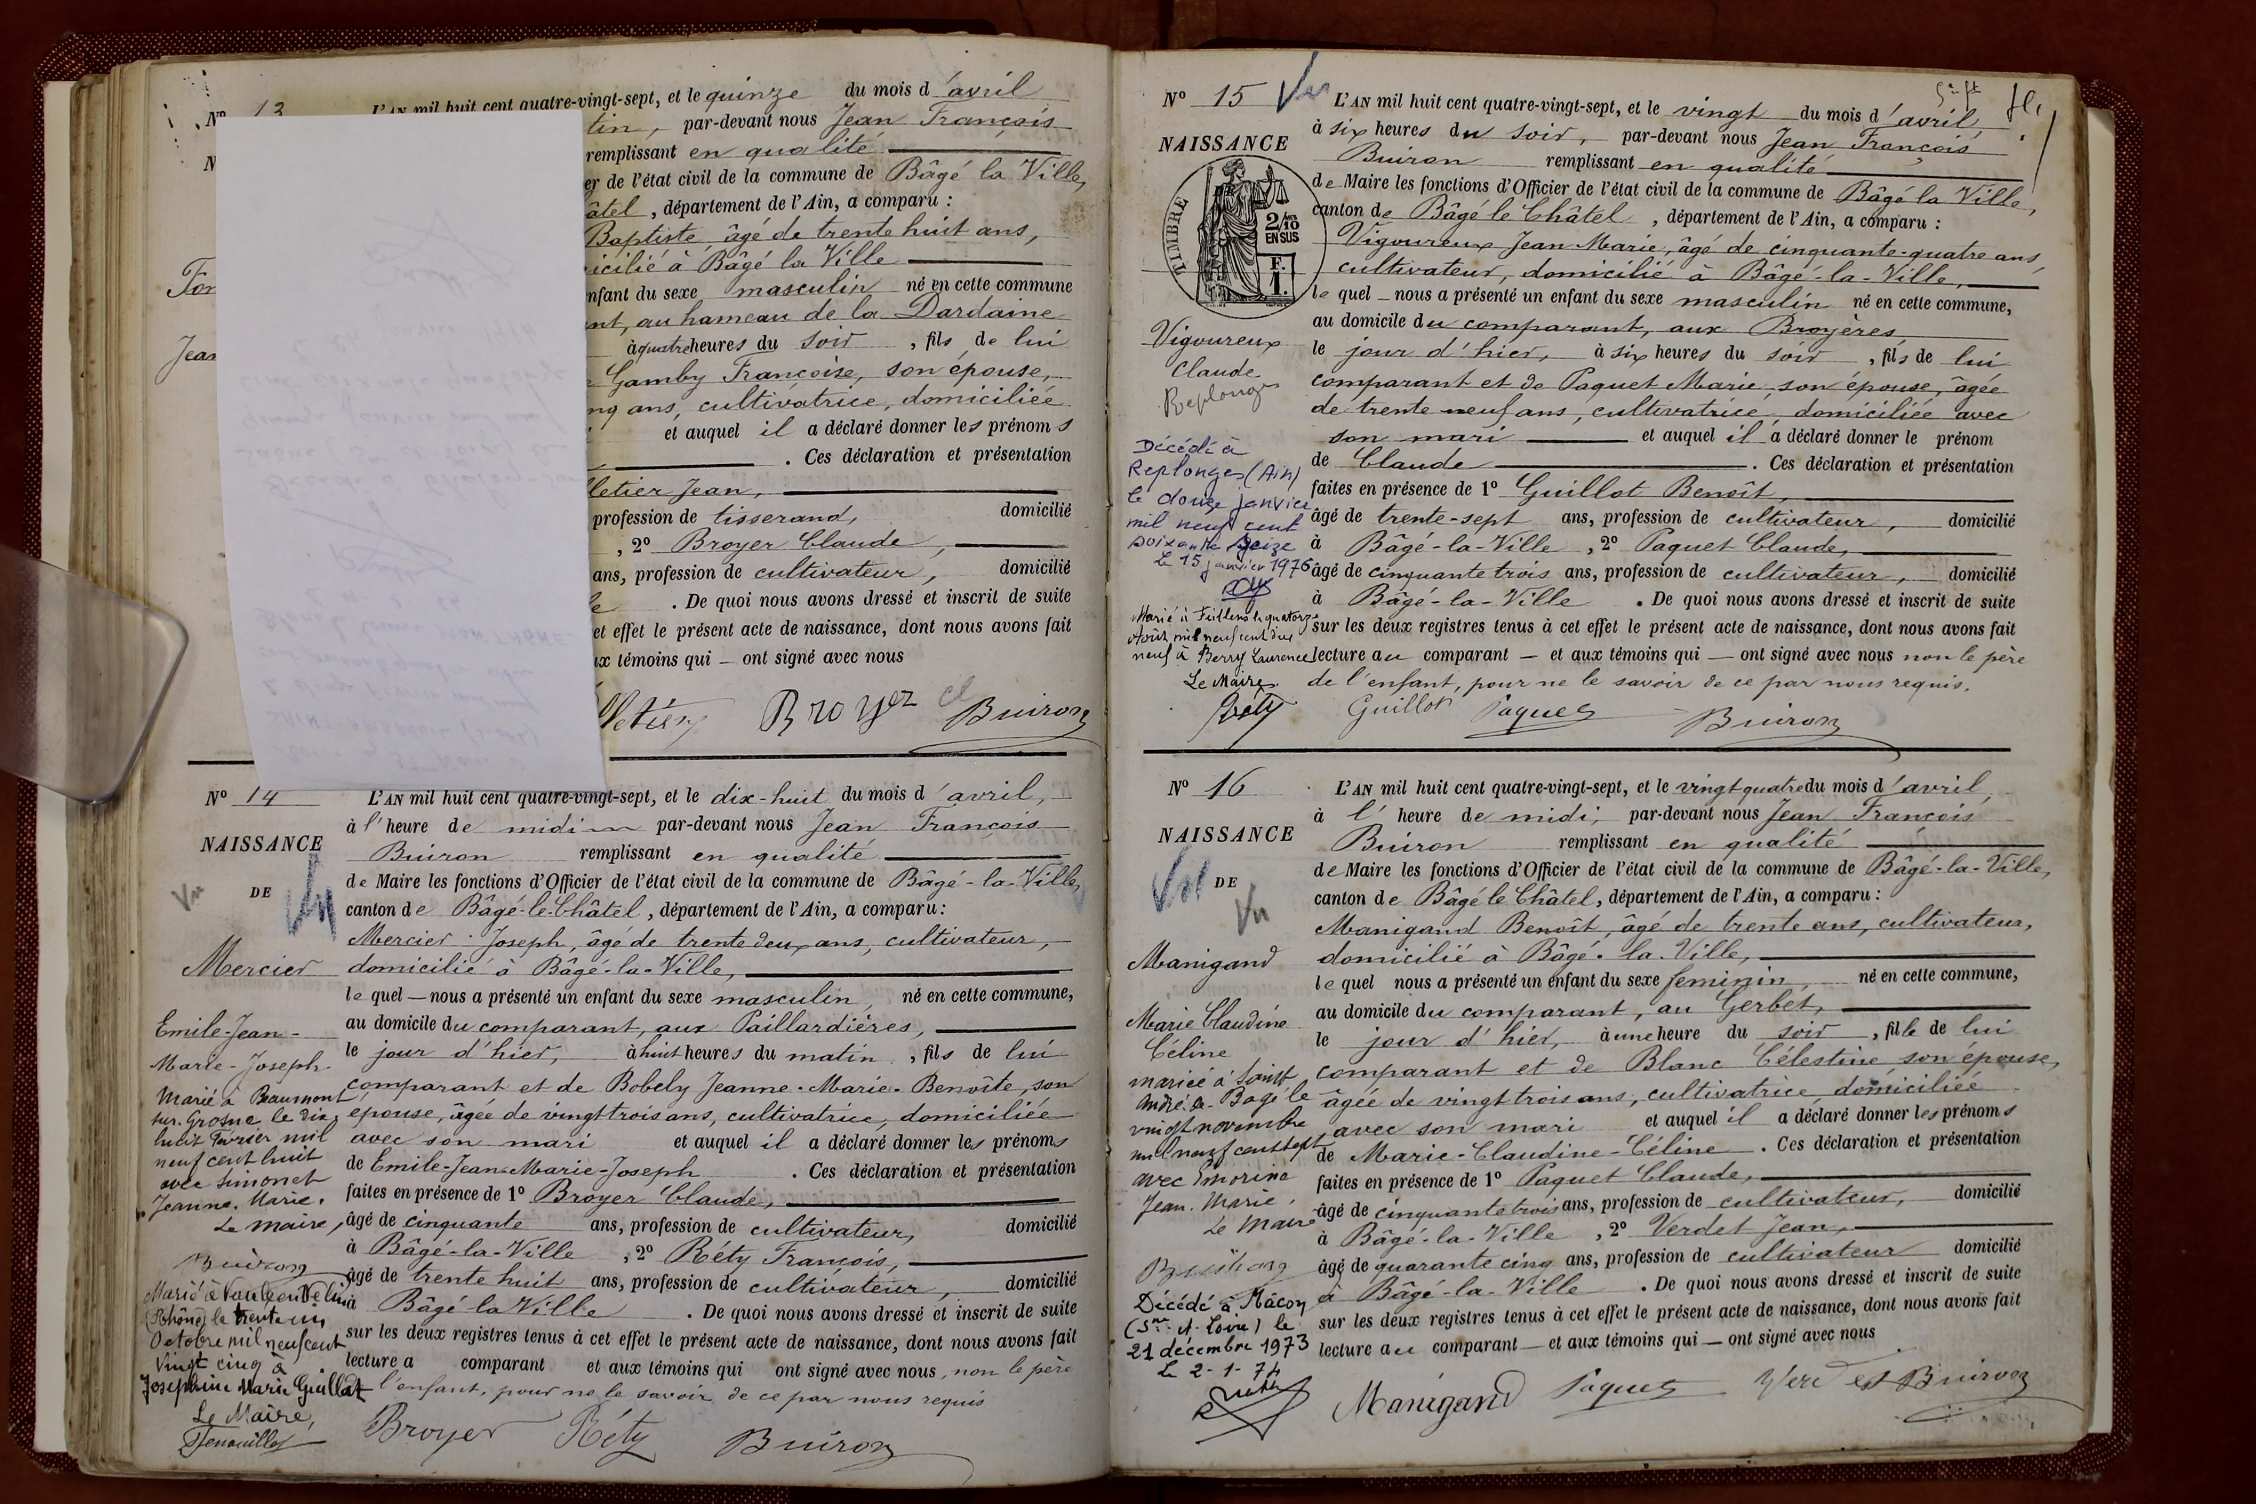 Nº 13
L'AN mil huit cent quatre-vingt-sept, et le quinze du mois d'avril
tin, par-devant nous Jean François
remplissant en qualité
er de l'état civil de la commune de Bâgé la Ville,
âtel, département de l'Ain, a comparu :
Baptiste âgé de trente huit ans,
icilié à Bâgé la Ville
nfant du sexe masculin né en cette commune
nt, au hameau de la Dardaine
à quatre heures du soir, fils de lui
Gamby Françoise, son épouse,
nq ans, cultivatrice, domiciliée
et auquel il a déclaré donner les prénoms
. Ces déclaration et présentation
lletier Jean,
profession de tisserand, domicilié
, 2º Broyer Claude,
ans, profession de cultivateur, domicilié
le . De quoi nous avons dressé et inscrit de suite
et effet le présent acte de naissance, dont nous avons fait
ux témoins qui — ont signé avec nous
lletier Broyer Cl Buiron
Nº 14
NAISSANCE
DE
Vu
Mercier
Emile-Jean-
Marie-Joseph
Marié à Beaumont
sur Grosne le dix
huit février mil
neuf cent huit
avec Simonet
Jeanne. Marie.
Le maire,
Buiron
Marié à Vaulx en Velin
(Rhône) le trente un
Octobre mil neuf cent
Vingt cinq à
Joséphine Marie Guillat
Le Maire,
L'AN mil huit cent quatre-vingt-sept, et le dix-huit du mois d'avril,
à l'heure de midi par-devant nous Jean François
Buiron remplissant en qualité
de Maire les fonctions d'Officier de l'état civil de la commune de Bâgé-la-Ville,
canton de Bâgé-le-Châtel, département de l'Ain, a comparu :
Mercier Joseph, âgé de trente deux ans, cultivateur,
domicilié à Bâgé-la-Ville,
lequel — nous a présenté un enfant du sexe masculin, né en cette commune,
au domicile du comparant, aux Paillardières,
le jour d'hier, à huit heures du matin, fils de lui
comparant et de Bobely Jeanne-Marie-Benoîte, son
épouse, âgée de vingt trois ans, cultivatrice, domiciliée
avec son mari et auquel il a déclaré donner les prénoms
de Emile-Jean-Marie-Joseph . Ces déclaration et présentation
faites en présence de 1º Broyer Claude,
âgé de cinquante ans, profession de cultivateur, domicilié
à Bâgé-la-Ville, 2º Réty François,
âgé de trente huit ans, profession de cultivateur, domicilié
à Bâgé-la-Ville . De quoi nous avons dressé et inscrit de suite
sur les deux registres tenus à cet effet le présent acte de naissance, dont nous avons fait
lecture a comparant et aux témoins qui ont signé avec nous, non le père
l'enfant, pour ne le savoir de ce par nous requis
Broyer Réty Buiron
Nº 15 Vu
NAISSANCE
TIMBRE
2/10
EN SUS
F.
1.
Vigoureux
Claude
Replonges
Décédé à
Replonges (Ain)
le douze janvier
mil neuf cent
soixante seize
Le 15 janvier 1976
Marié à Feillens le quatorze
Août mil neuf cent dix
neuf à Berry Laurence
Le Maire
Réty
L'AN mil huit cent quatre-vingt-sept, et le vingt du mois d'avril
à six heures du soir, par-devant nous Jean François
Buiron remplissant en qualité
de Maire les fonctions d'Officier de l'état civil de la commune de Bâgé la Ville,
canton de Bâgé le Châtel, département de l'Ain, a comparu :
Vigoureux Jean Marie, âgé de cinquante-quatre ans,
cultivateur, domicilié à Bâgé-la-Ville,
lequel — nous a présenté un enfant du sexe masculin né en cette commune,
au domicile du comparant, aux Broyères
le jour d'hier, à six heures du soir, fils de lui
comparant et de Paquet Marie, son épouse, âgée
de trente neuf ans, cultivatrice, domiciliée avec
son mari et auquel il a déclaré donner le prénom
de Claude . Ces déclaration et présentation
faites en présence de 1º Guillot Benoît,
âgé de trente-sept ans, profession de cultivateur, domicilié
à Bâgé-la-Ville, 2º Paquet Claude,
âgé de cinquante trois ans, profession de cultivateur, domicilié
à Bâgé-la-Ville . De quoi nous avons dressé et inscrit de suite
sur les deux registres tenus à cet effet le présent acte de naissance, dont nous avons fait
lecture au comparant — et aux témoins qui — ont signé avec nous non le père
de l'enfant, pour ne le savoir de ce par nous requis.
Guillot Paquet Buiron
Nº 16
NAISSANCE
DE
Vu
Manigand
Marie Claudine
Céline
mariée à Saint
André-de-Bagé le
vingt novembre
mil neuf cent sept
avec Emorine
Jean. Marie.
Le Maire
Décédé à Mâcon
(Sne-et-Loire) le
21 décembre 1973
Le 2-1-74
L'AN mil huit cent quatre-vingt-sept, et le vingt quatre du mois d'avril,
à l'heure de midi, par-devant nous Jean François
Buiron remplissant en qualité
de Maire les fonctions d'Officier de l'état civil de la commune de Bâgé-la-Ville,
canton de Bâgé le Châtel, département de l'Ain, a comparu :
Manigand Benoît, âgé de trente ans, cultivateur,
domicilié à Bâgé-la-Ville,
lequel nous a présenté un enfant du sexe feminin, né en cette commune,
au domicile du comparant, au Gerbet,
le jour d'hier, à une heure du soir, fille de lui
comparant et de Blanc Célestine, son épouse,
âgée de vingt trois ans, cultivatrice, domiciliée
avec son mari et auquel il a déclaré donner les prénoms
de Marie-Claudine-Céline . Ces déclaration et présentation
faites en présence de 1º Paquet Claude,
âgé de cinquante trois ans, profession de cultivateur, domicilié
à Bâgé-la-Ville, 2º Verdet Jean,
âgé de quarante cinq ans, profession de cultivateur domicilié
à Bâgé-la-Ville . De quoi nous avons dressé et inscrit de suite
sur les deux registres tenus à cet effet le présent acte de naissance, dont nous avons fait
lecture au comparant — et aux témoins qui — ont signé avec nous
Manigand Paquet Verdet Buiron